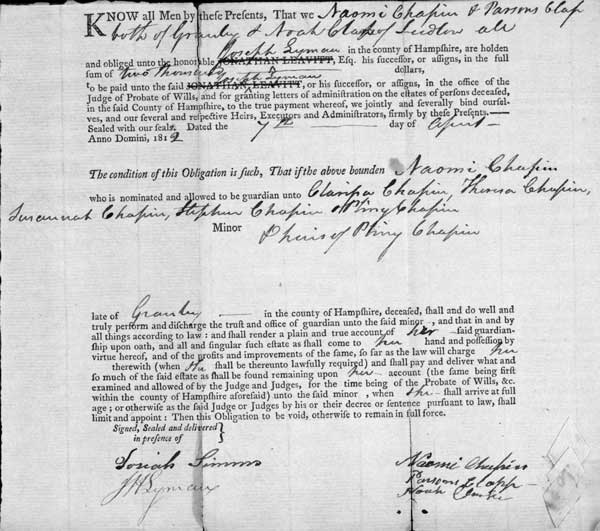 KNOW all Men by these Presents, That we Naomi Chapin & Parsons Clap
both of Granby & Noah Clap of Ludlow all
Joseph Lyman in the county of Hampshire, are holden
and obliged unto the honorable JONATHAN LEAVITT, Esq. his successor, or assigns, in the full
sum of two thousand dollars,
Joseph Lyman
to be paid unto the said JONATHAN LEAVITT, or his successor, or assigns, in the office of the
Judge of Probate of Wills, and for granting letters of administration on the estates of persons deceased,
in the said County of Hampshire, to the true payment whereof, we jointly and severally bind ourselves,
and our several and respective Heirs, Executors and Administrators, firmly by these Presents.
Sealed with our seals. Dated the 7th day of April
Anno Domini, 1812
The condition of this Obligation is such, That if the above bounden Naomi Chapin
who is nominated and allowed to be guardian unto Clarissa Chapin, Theresa Chapin,
Susannah Chapin, Stephen Chapin & Pliny Chapin
Minor
Pliny Chapin
late of Granby in the county of Hampshire, deceased, shall and do well and
truly perform and discharge the trust and office of guardian unto the said minor, and that in and by
all things according to law: and shall render a plain and true account of her said guardian-
ship upon oath, and all and singular such estate as shall come to her hand and possession by
virtue hereof, and of the profits and improvements of the same, so far as the law will charge her
therewith (when she shall be thereunto lawfully required) and shall pay and deliver what and
so much of the said estate as shall be found remaining upon her account (the same being first
examined and allowed of by the Judge and Judges, for the time being of the Probate of Wills, &c.
within the county of Hampshire aforesaid) unto the said minor, when she shall arrive at full
age; or otherwise as the said Judge or Judges by his or their decree or sentence pursuant to law, shall
limit and appoint: Then this Obligation to be void, otherwise to remain in full force.
Signed, Sealed and delivered
in presence of
Josiah Simms
Lyman
Naomi Chapin
Parsons Clapp
Noah